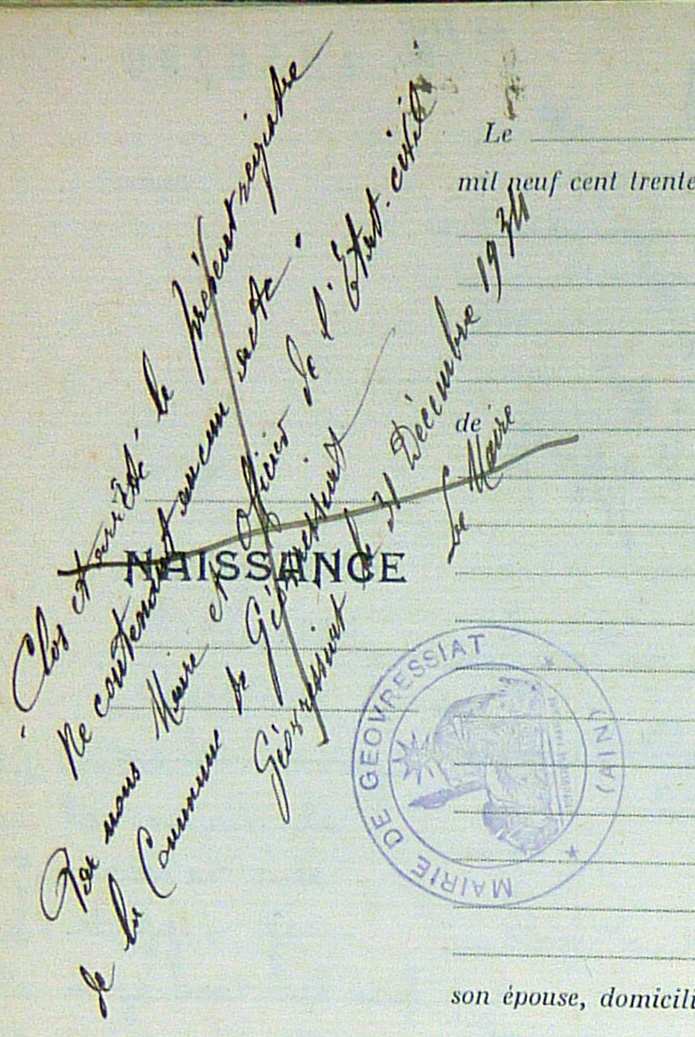 Clos et arrêté le présent registre
ne contenant aucun acte.
Par nous Maire et Officier de l'État-civil
de la Commune de Géovressiat
Géovressiat le 31 Décembre 1934
Le Maire
NAISSANCE
MAIRIE DE GEOVRESSIAT
(AIN)
Le
mil neuf cent trente
de
son épouse, domicili